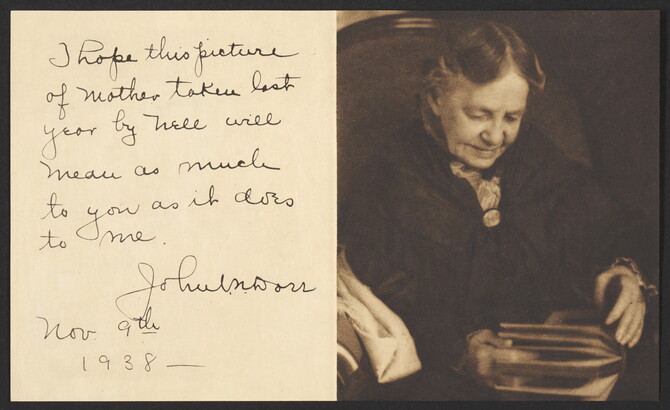 I hope this picture
of Mother taken last
year by Nell will
mean as much
to you as it does
to me.
John V.N. Dorr
Nov. 9th
1938 —